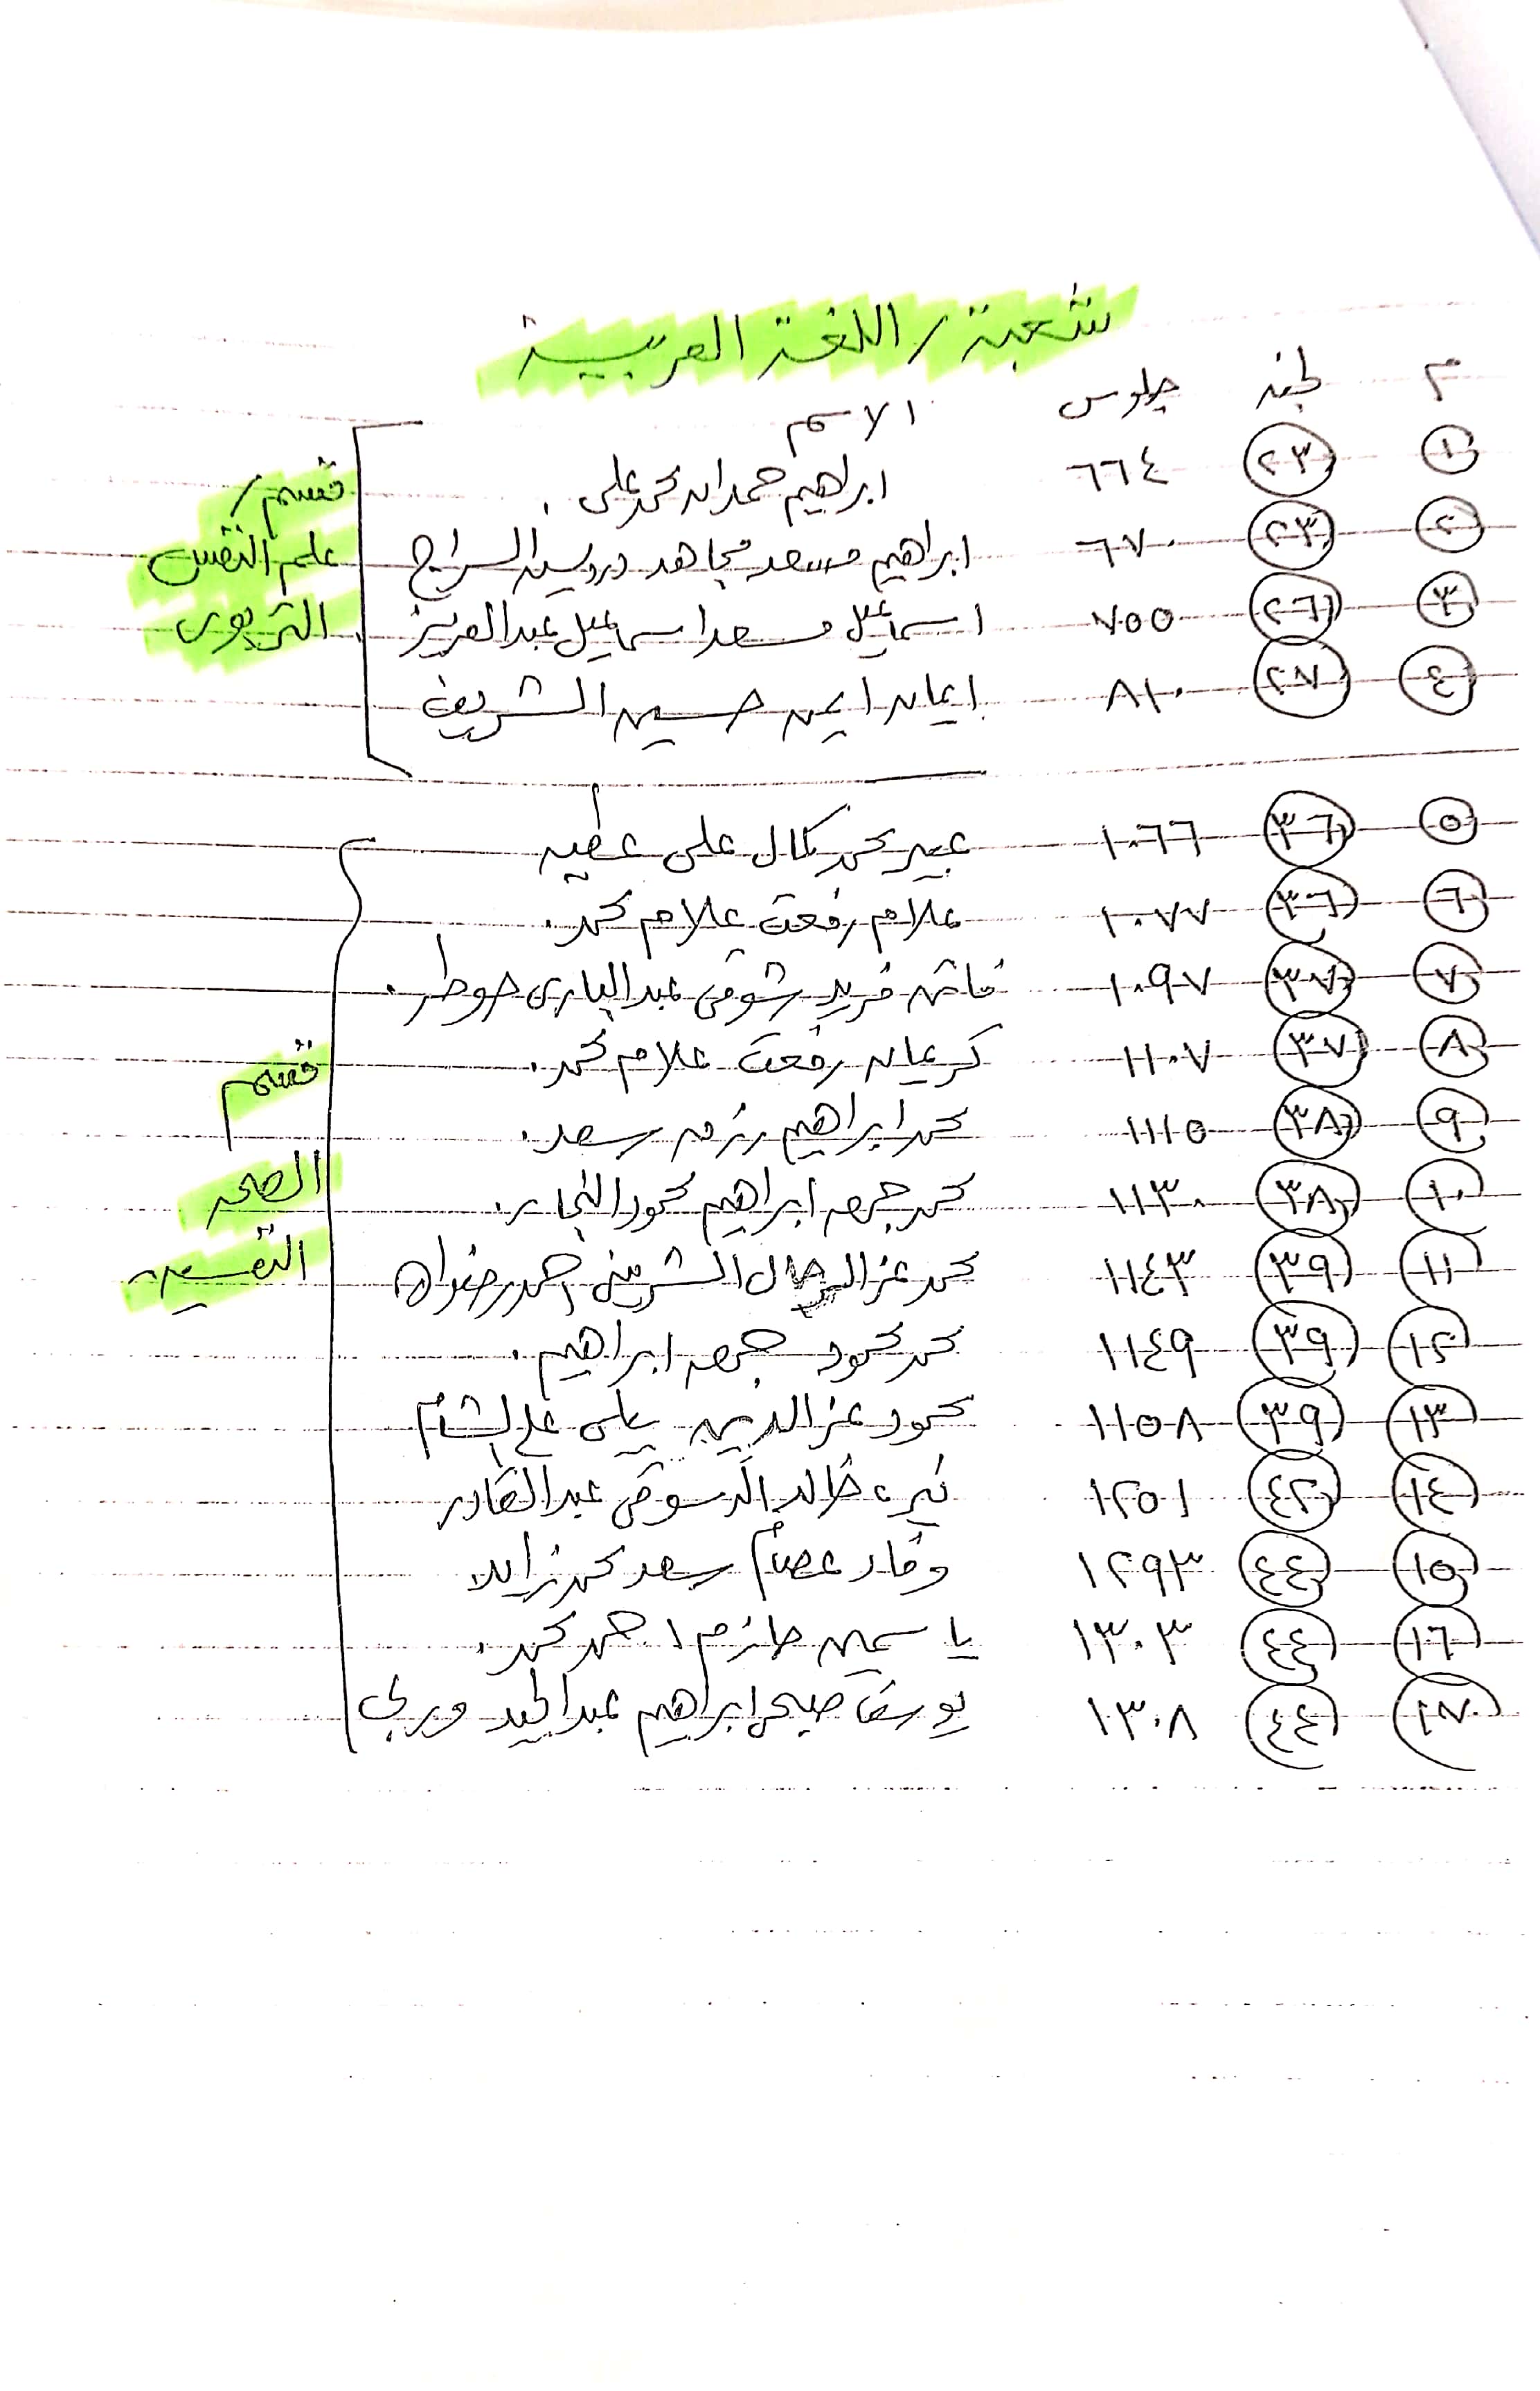 شعبة / اللغة العربية
م لجنه جلوس الاسم
١ ٢٣ ٦٦٤ ابراهيم حمدان محمد على
٢ ٢٣ ٦٧٠ ابراهيم مسعد مجاهد درويش السراج
٣ ٢٦ ٧٥٥ اسماعيل مسعد اسماعيل عبد العزيز
٤ ٢٧ ٨١٠ ايمان ايمن حسين الشريف
قسم /
علم النفس
التربوى
٥ ٣٦ ١٠٦٦ عبير محمد كمال على عطيه
٦ ٣٦ ١٠٧٧ علام رفعت علام محمد
٧ ٣٧ ١٠٩٧ فاتن فريد شوقى عبد البارى حوطر
٨ ٣٧ ١١٠٧ كريمان رفعت علام محمد
٩ ٣٨ ١١١٥ محمد ابراهيم رزق سعد
١٠ ٣٨ ١١٣٠ محمد جمعه ابراهيم محمود النجار
١١ ٣٩ ١١٤٣ محمد عز الرجال الشربينى احمد رضوان
١٢ ٣٩ ١١٤٩ محمد محمود جمعه ابراهيم
١٣ ٣٩ ١١٥٨ محمود عز الدين على
١٤ ٤٢ ١٢٥١ نيره خالد الدسوقى عبد القادر
١٥ ٤٤ ١٢٩٣ وفاء عصام سعد محمد زايد
١٦ ٤٤ ١٣٠٣ ياسمين حازم احمد محمد
١٧ ٤٤ ١٣٠٨ يوسف صبحى ابراهيم عبد الحميد
قسم
الصحه
النفسيه